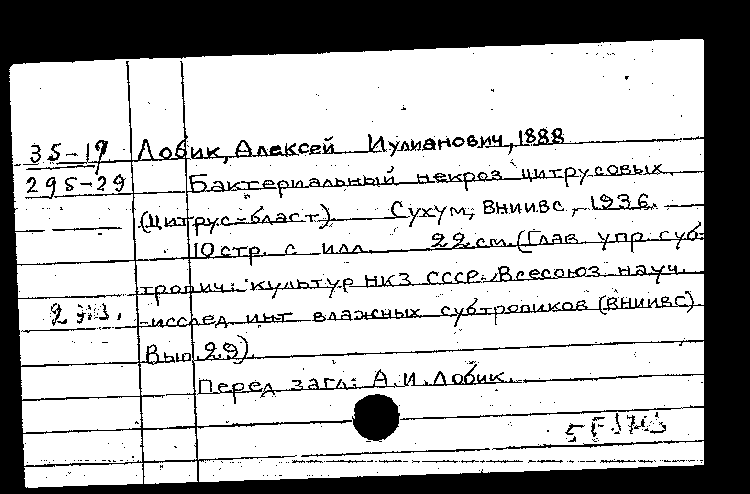 35-19 Лобик, Алексей Иулианович, 1888
295-29 Бактериальный некроз цитрусовых
(Цитрус-бласт). Сухум, ВНИИВС, 1936.
10 стр. с илл. 22 см. (Глав. упр. суб-
тропич. культур НКЗ СССР. Всесоюз. науч.
2 экз. -исслед. инт влажных субтропиков (ВНИИВС).
Вып. 29).
Перед загл: А. И. Лобик.